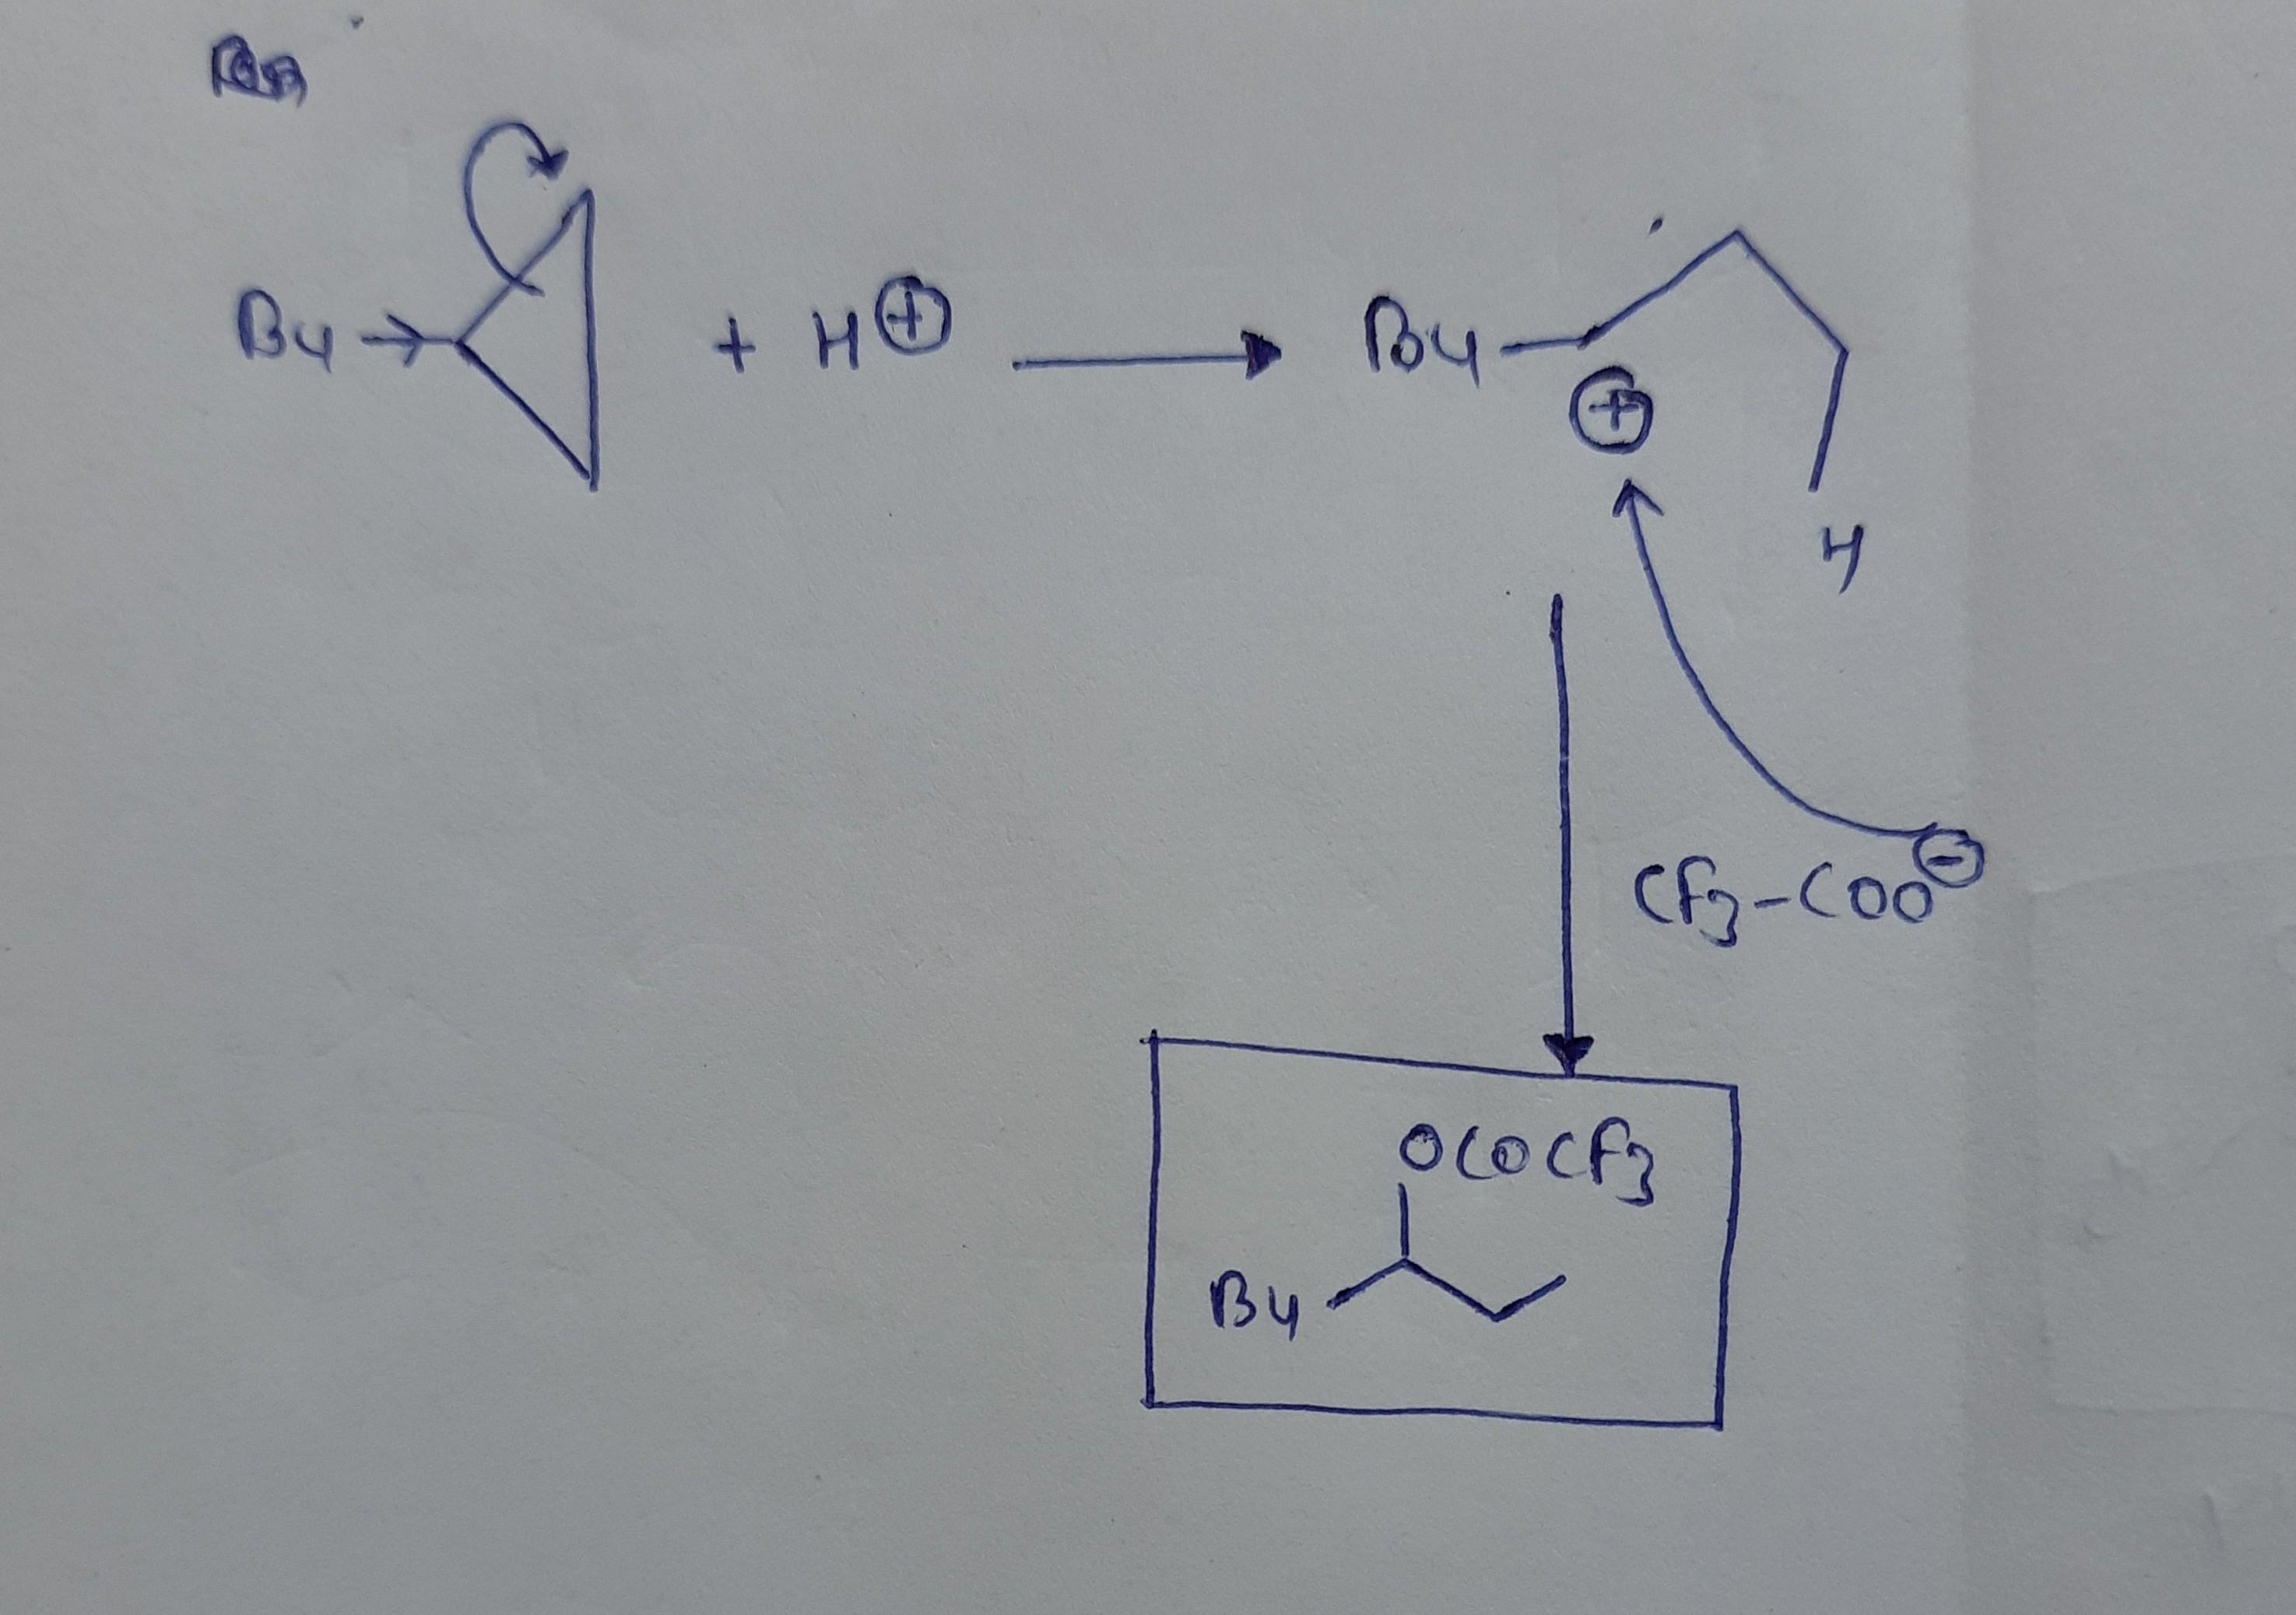 Bu + H⊕ Bu
⊕
H
CF3-COO⊖
OCOCF3
Bu